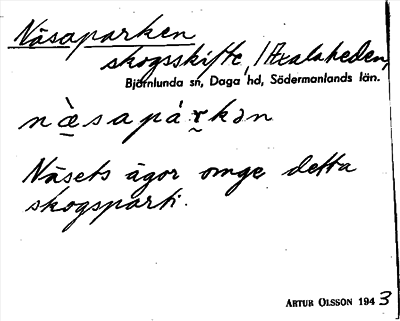 Näsaparken
skogsskifte, /Axalaheden,
Björnlunda sn, Daga hd, Södermanlands län.
næ̀sapár̭kən
Näsets ägor omge detta
skogsparti.
ARTUR OLSSON 1943